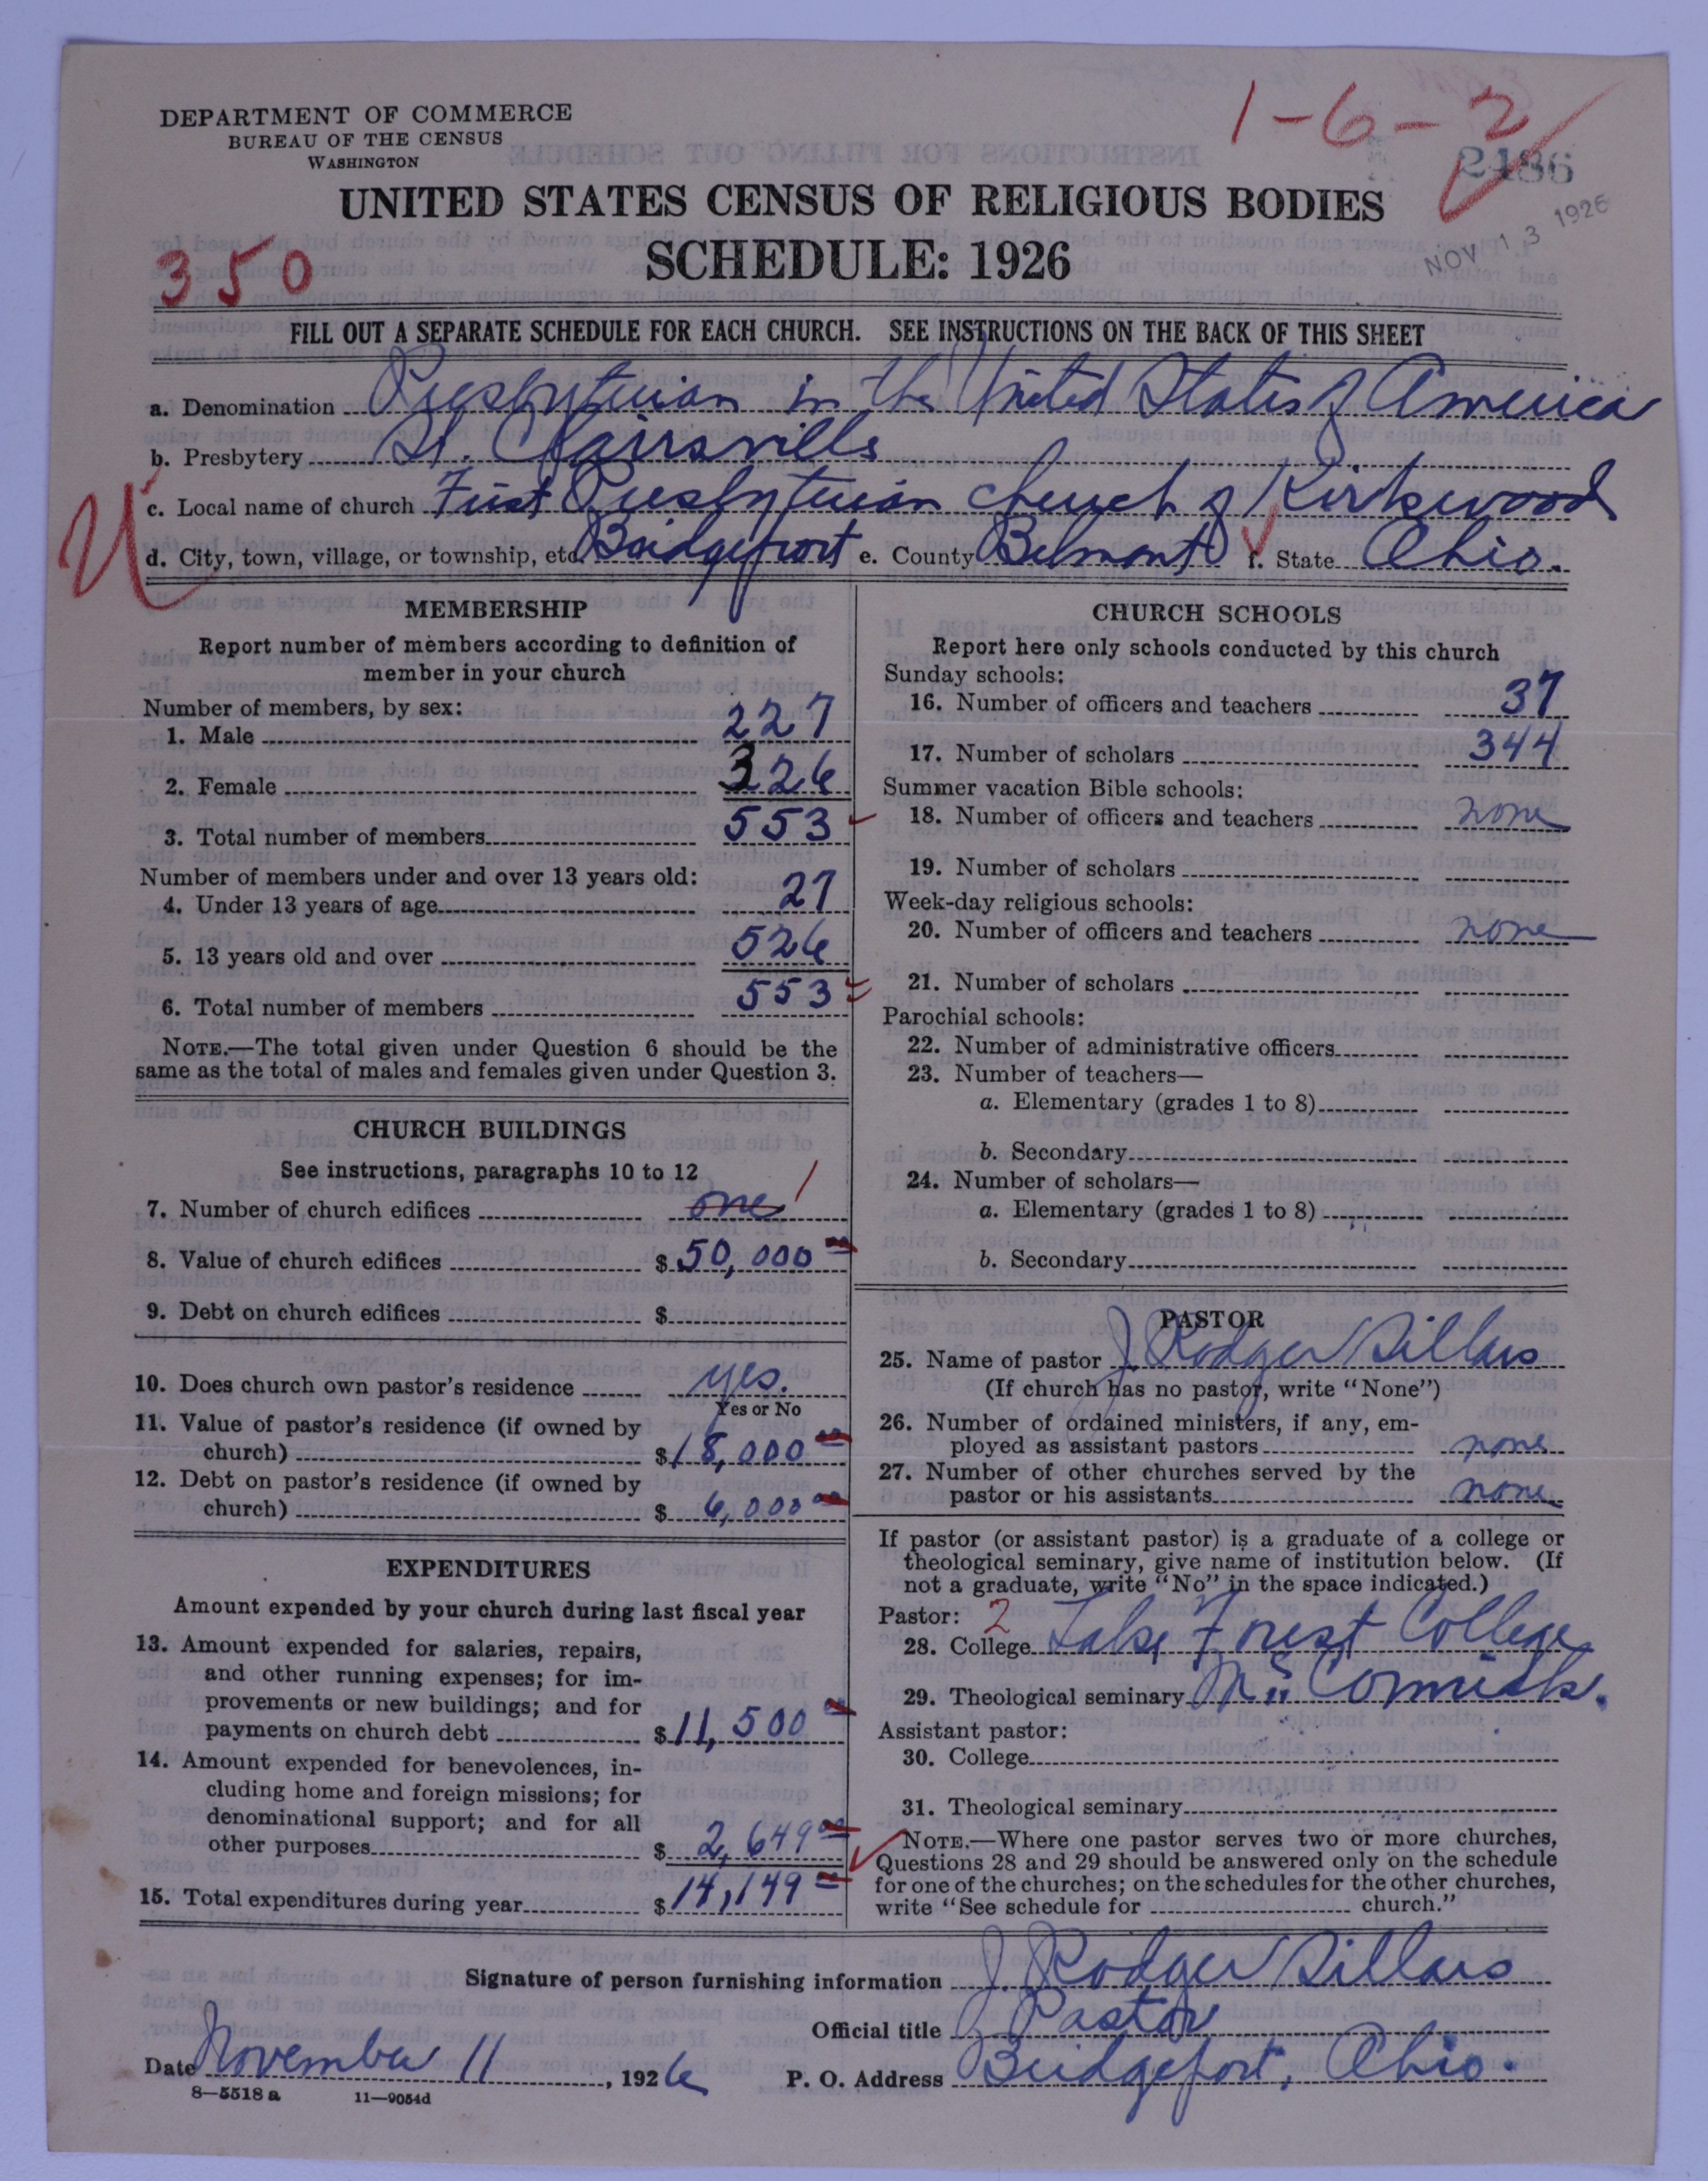 DEPARTMENT OF COMMERCE
BUREAU OF THE CENSUS
WASHINGTON
1-6-2
2486
NOV 13 1926
UNITED STATES CENSUS OF RELIGIOUS BODIES
SCHEDULE: 1926
350
FILL OUT A SEPARATE SCHEDULE FOR EACH CHURCH. SEE INSTRUCTIONS ON THE BACK OF THIS SHEET
a. Denomination Presbyterian in the United States of America
b. Presbytery St. Clairsville
c. Local name of church First Presbyterian Church of Kirkwood
d. City, town, village, or township, etc. Bridgeport e. County Belmont f. State Ohio.
MEMBERSHIP
Report number of members according to definition of
member in your church
Number of members, by sex:
1. Male 227
2. Female 326
3. Total number of members 553
Number of members under and over 13 years old:
4. Under 13 years of age 27
5. 13 years old and over 526
6. Total number of members 553
NOTE.—The total given under Question 6 should be the
same as the total of males and females given under Question 3.
CHURCH BUILDINGS
See instructions, paragraphs 10 to 12
7. Number of church edifices one 1
8. Value of church edifices $50,000 00
9. Debt on church edifices $
10. Does church own pastor's residence yes.
Yes or No
11. Value of pastor's residence (if owned by
church) $18,000 00
12. Debt on pastor's residence (if owned by
church) $6,000 00
EXPENDITURES
Amount expended by your church during last fiscal year
13. Amount expended for salaries, repairs,
and other running expenses; for im-
provements or new buildings; and for
payments on church debt $11,500 00
14. Amount expended for benevolences, in-
cluding home and foreign missions; for
denominational support; and for all
other purposes $2,649 00
15. Total expenditures during year $14,149 00
CHURCH SCHOOLS
Report here only schools conducted by this church
Sunday schools:
16. Number of officers and teachers 37
17. Number of scholars 344
Summer vacation Bible schools:
18. Number of officers and teachers none
19. Number of scholars
Week-day religious schools:
20. Number of officers and teachers none
21. Number of scholars
Parochial schools:
22. Number of administrative officers
23. Number of teachers—
a. Elementary (grades 1 to 8)
b. Secondary
24. Number of scholars—
a. Elementary (grades 1 to 8)
b. Secondary
PASTOR
25. Name of pastor J Rodger Sillars
(If church has no pastor, write "None")
26. Number of ordained ministers, if any, em-
ployed as assistant pastors none
27. Number of other churches served by the
pastor or his assistants none
If pastor (or assistant pastor) is a graduate of a college or
theological seminary, give name of institution below. (If
not a graduate, write "No" in the space indicated.)
Pastor: 2
28. College Lake Forest College
29. Theological seminary McCormick.
Assistant pastor:
30. College
31. Theological seminary
NOTE.—Where one pastor serves two or more churches,
Questions 28 and 29 should be answered only on the schedule
for one of the churches; on the schedules for the other churches,
write "See schedule for church."
Signature of person furnishing information J Rodger Sillars
Official title Pastor
Date November 11, 1926 P. O. Address Bridgeport, Ohio.
8—5518 a 11—9054d